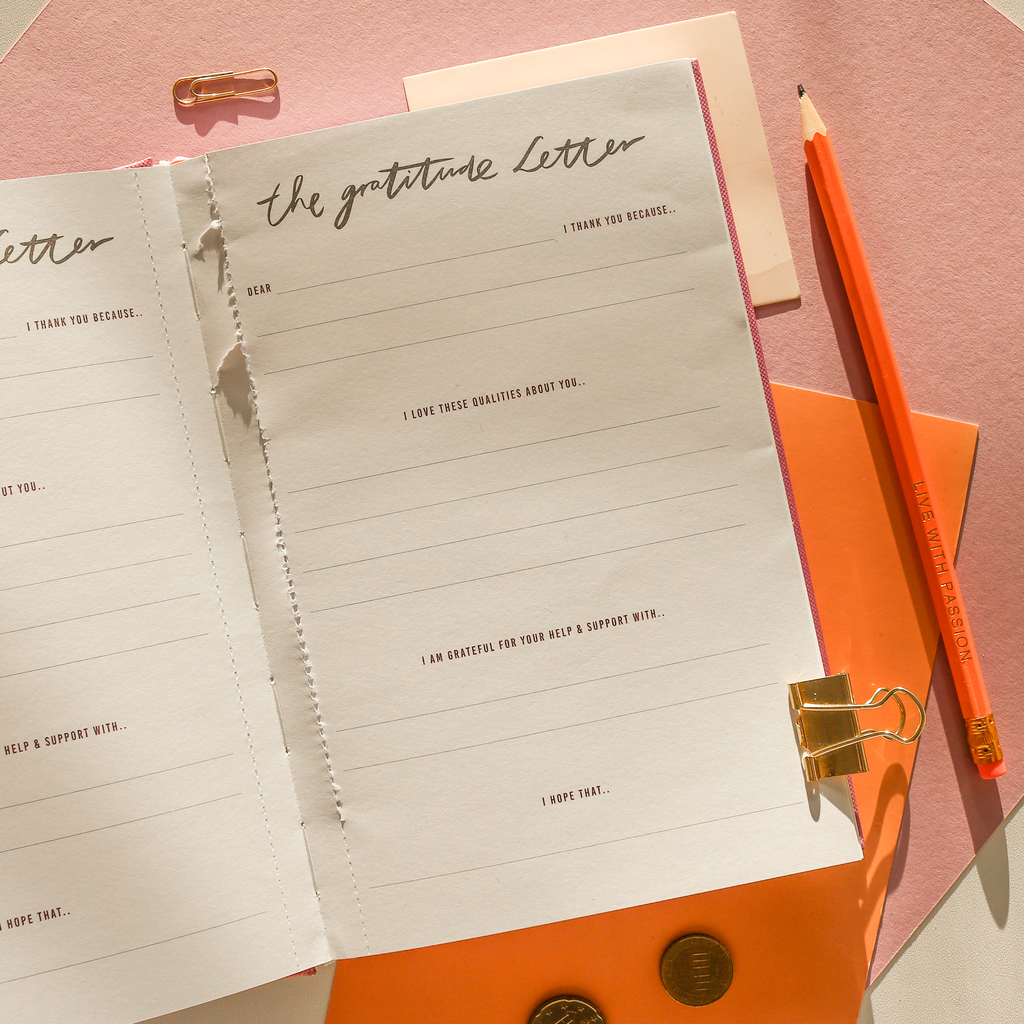 Letter
I THANK YOU BECAUSE..
UT YOU..
HELP & SUPPORT WITH..
HOPE THAT..
the gratitude Letter
I THANK YOU BECAUSE..
DEAR
I LOVE THESE QUALITIES ABOUT YOU..
I AM GRATEFUL FOR YOUR HELP & SUPPORT WITH..
I HOPE THAT..
LIVE WITH PASSION